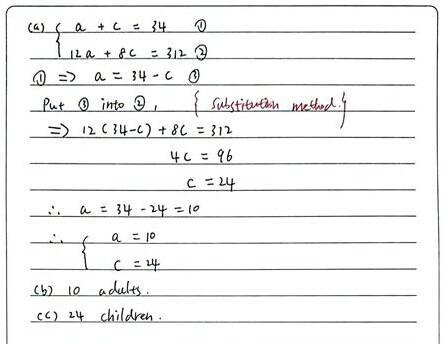 (a) { a + c = 34 ①
12a + 8c = 312 ②
① => a = 34 - c ③
Put ③ into ②, { substitution method. }
=> 12(34-c) + 8c = 312
4c = 96
c = 24
∴ a = 34 - 24 = 10
∴ { a = 10
c = 24
(b) 10 adults.
(c) 24 children.